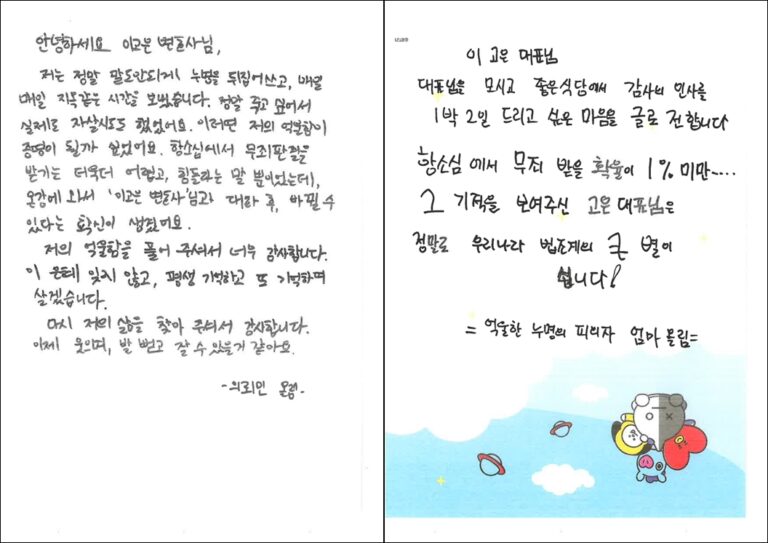 안녕하세요 이고은 변호사님,
저는 정말 말도안되게 누명을 뒤집어쓰고, 매일
매일 지옥같은 시간을 보냈습니다. 정말 죽고 싶어서
실제로 자살시도도 했었어요. 이러면 저의 억울함이
증명이 될까 싶었어요. 항소심에서 무죄판결을
받기는 더욱더 어렵고, 힘들다는 말 뿐이었는데,
온강에 와서 '이고은 변호사'님과 대화 후, 바뀔 수
있다는 확신이 생겼어요.
저의 억울함을 풀어 주셔서 너무 감사합니다.
이 은혜 잊지 않고, 평생 기억하고 또 기억하며
살겠습니다.
다시 저의 삶을 찾아 주셔서 감사합니다.
이제 웃으며, 발 뻗고 잘 수 있을거 같아요.
-의뢰인 올림-
이 고은 대표님
대표님은 모시고 좋은식당에서 감사의 인사를
1박 2일 드리고 싶은 마음을 글로 전합니다
항소심에서 무죄 받을 확률이 1% 미만....
그 기적을 보여주신 고은 대표님은
정말로 우리나라 법조계의 큰 별이
십니다!
= 억울한 누명의 피의자 엄마 올림=